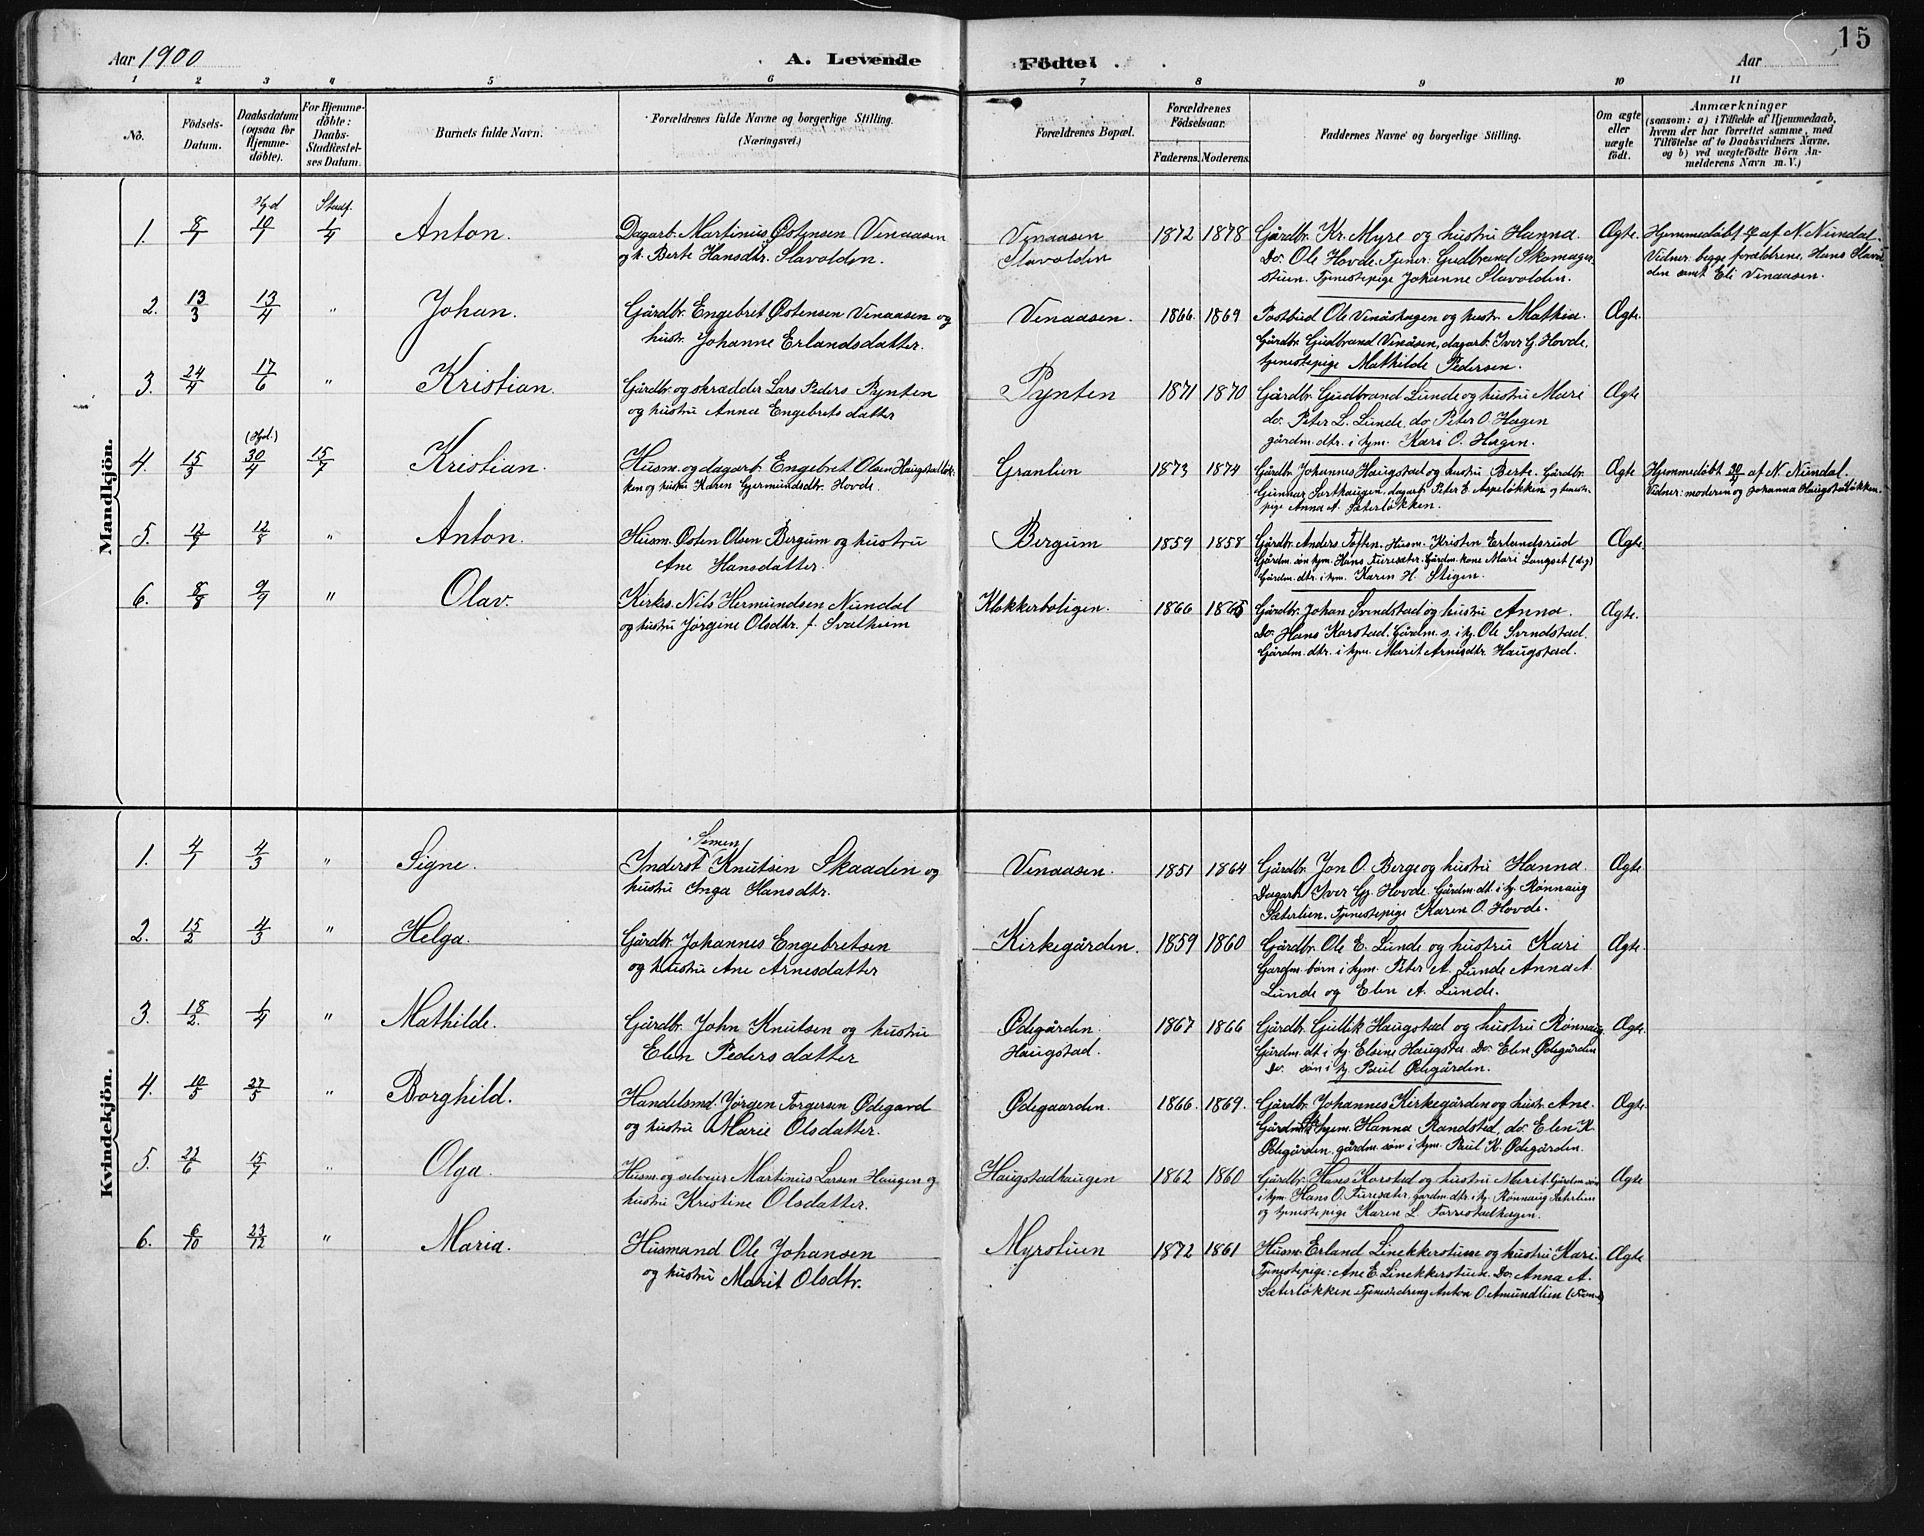 15
Aar 1900 A. Levende Födte. Aar
1 2 3 4 5 6 7 8 9 10 11
No.
Födsels-Datum.
Daabsdatum (ogsaa for Hjemme-döbte).
For Hjemme-döbte: Daabs-Stadfæstel-ses Datum.
Barnets fulde Navn.
Forældrenes fulde Navne og borgerlige Stilling. (Næringsvei.)
Forældrenes Bopæl.
Forældrenes Födselsaar.
Faderens. Moderens.
Faddernes Navne og borgerlige Stilling.
Om ægte eller uægte födt.
Anmærkninger
(saasom: a) i Tilfælde af Hjemmedaab,
hvem der har forrettet samme, med
Tilföielse af to Daabsvidners Navne,
og b) ved uægtefödte Börn An-
melderens Navn m. V.)
Mandkjön.
1. 8/1 Hjd 10/1 Stadf. 1/4 Anton.
Dagarb. Martinius Østensen Vinaasen
og h. Berte Hansdtr. Slavolden.
Vinaasen
Slavolden
1872 1878
Gårdbr. Kr. Myre og hustru Hanna.
Do. Ole Hovde. Tjener: Gudbrand Skomager-
stuen. Tjenestepige Johanne Slavolden.
Ægte.
Hjemmedöbt af N. Nundal.
Vidner: begge forældrene, Hans Slavol-
den samt Eli Vinaasen.
2. 13/3 13/4 " Johan.
Gårdbr. Engebret Østensen Vinaasen og
hustr. Johanne Erlandsdatter.
Vinaasen.
1866. 1869
Postbud Ole Vinåshagen og hustr. Mathia.
Gårdbr. Gudbrand Vinåsen, dagarb. Iver G. Hovde,
tjenestepige Mathilde Pedersen.
Ægte.
3. 24/4 17/6 " Kristian.
Gårdbr. og skrædder Lars Peders. Pynten
og hustru Anna Engebretsdatter
Pynten
1871 1870
Gårdbr. Gudbrand Lunde og hustru Mari
do. Peter L. Lunde, do. Peter O. Hagen
gårdm. dtr. i hjm. Kari O. Hagen.
Ægte
4. 15/3 (Hjd.) 30/4 15/7 Kristian.
Husm. og dagarb. Engebret Olsen Haugstadløk-
ken og hustr. Karen Gjermundsdtr. Hovde.
Granlien
1873 1874
Gårdbr. Johannes Haugstad og hustru Berte. Gårdbr.
Gunnar Sorthaugen, dagarb. Peter E. Aspeløkken og tjeneste-
pige Anna A. Sæterløkken.
Ægte
Hjemmedöbt 30/4 af N. Nundal.
Vidner: moderen og Johanna Haugstadløkken.
5. 12/7 12/8 " Anton.
Husm. Østen Olsen Bergum og hustru
Ane Hansdatter.
Bergum
1859 1858
Gårdbr. Anders Toften. Husm. Kristen Erlandsrud
Gårdm. søn hjm. Hans Furesæter. Gårdm. kone Mari Langset (d.y)
Gårdm. dtr. i hjm. Karen H. Stigen.
Ægte.
6. 8/8 9/9 " Olav.
Kirkes. Nils Hermundsen Nundal
og hustru Jørgine Olsdtr. f. Svalheim
Klokkerboligen.
1866 1865
Gårdbr. Johan Svindstad og hustru Anna.
Do. Hans Korstad. Gårdm. s. i hj. Ole Svindstad.
Gårdm. dtr. i hjm. Marit Arnesdtr. Haugstad.
Ægte.
Kvindekjön.
1. 4/1 4/3 " Signe.
Simen
Inderst Knutsen Skaaden og
hustru Inga Hansdtr.
Vinaasen.
1851 1864
Gårdbr. Jon O. Berge og hustru Hanna.
Dagarb. Iver Gj. Hovde. Gårdm. dt. i hj. Rønnaug
Sæterlien. Tjenestepige Karen O. Hovde.
Ægte.
2. 15/2 4/3 " Helga.
Gårdbr. Johannes Engebretsen
og hustru Ane Arnesdatter
Kirkegården.
1859 1860
Gårdbr. Ole E. Lunde og hustru Kari
Gårdm. børn i hjm. Peter A. Lunde Anna A.
Lunde og Elen A. Lunde.
Ægte.
3. 18/2. 1/4 " Mathilde.
Gårdbr. John Knutsen og hustru
Elen Pedersdatter
Ødegården.
Haugstad.
1867 1866
Gårdbr. Gullik Haugstad og hustru Rønnaug.
Gårdm. dt. i hj. Elsine Haugstad. Do. Elen Ødegården
do. søn i hj. Paul Ødegården.
Ægte.
4. 10/5 27/5 " Borghild.
Handelsmd. Jørgen Torgersen Ødegård
og hustru Marie Olsdatter.
Ødegaarden.
1866. 1869.
Gårdbr. Johannes Kirkegården og hustr. Ane.
Gårdm. dtr. hjem. Hanna Randstad, do. Elen K.
Ødegården. gårdm. søn i hjm. Paul K. Ødegården.
Ægte.
5. 22/6 15/7 " Olga.
Husm. og selveier Martinus Larsen Haugen og
hustru Kristine Olsdatter.
Haugstadhaugen
1862 1860
Gårdbr. Hans Korstad og hustru Marit. Gårdm. søn
i hjm. Hans O. Furesæter. gårdm. dtr. i hj. Rønnaug Sæterlien
og tjenestepige Karen L. Forrestadhagen.
Ægte
6. 6/10 23/12 " Maria.
Husmand Ole Johansen
og hustru Marit Olsdtr.
Myrstuen
1872 1861
Husm. Erland Linekkerstuen og hustru Kari.
Tjenestepige: Ane E. Linekkerstuen. Do. Anna A.
Sæterløkken. Tjenestedreng Anton O. Amundlien
Ægte